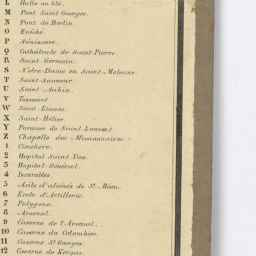 L Halle au blé.
M Pont Saint-Georges.
N Pont de Berlin.
O Evêché
P Séminaire.
Q Cathédrale de Saint-Pierre.
R Saint-Germain.
S Notre-Dame ou Saint-Melaine.
T Saint-Sauveur.
U Saint-Aubin.
V Toussaint
W Saint-Etienne.
X Saint-Hélier.
Y Paroisse de Saint-Laurent
Z Chapelle des Missionnaires
1 Cimetière.
2 Hôpital Saint-Yves.
3 Hôpital-Général.
4 Incurables
5 Asile d'aliénés de St-Méen.
6 Ecole d'Artillerie.
7 Polygone.
8 Arsenal.
9 Caserne de l'Arsenal.
10 Caserne du Colombier.
11 Caserne St-Georges
12 Caserne de Kergus.